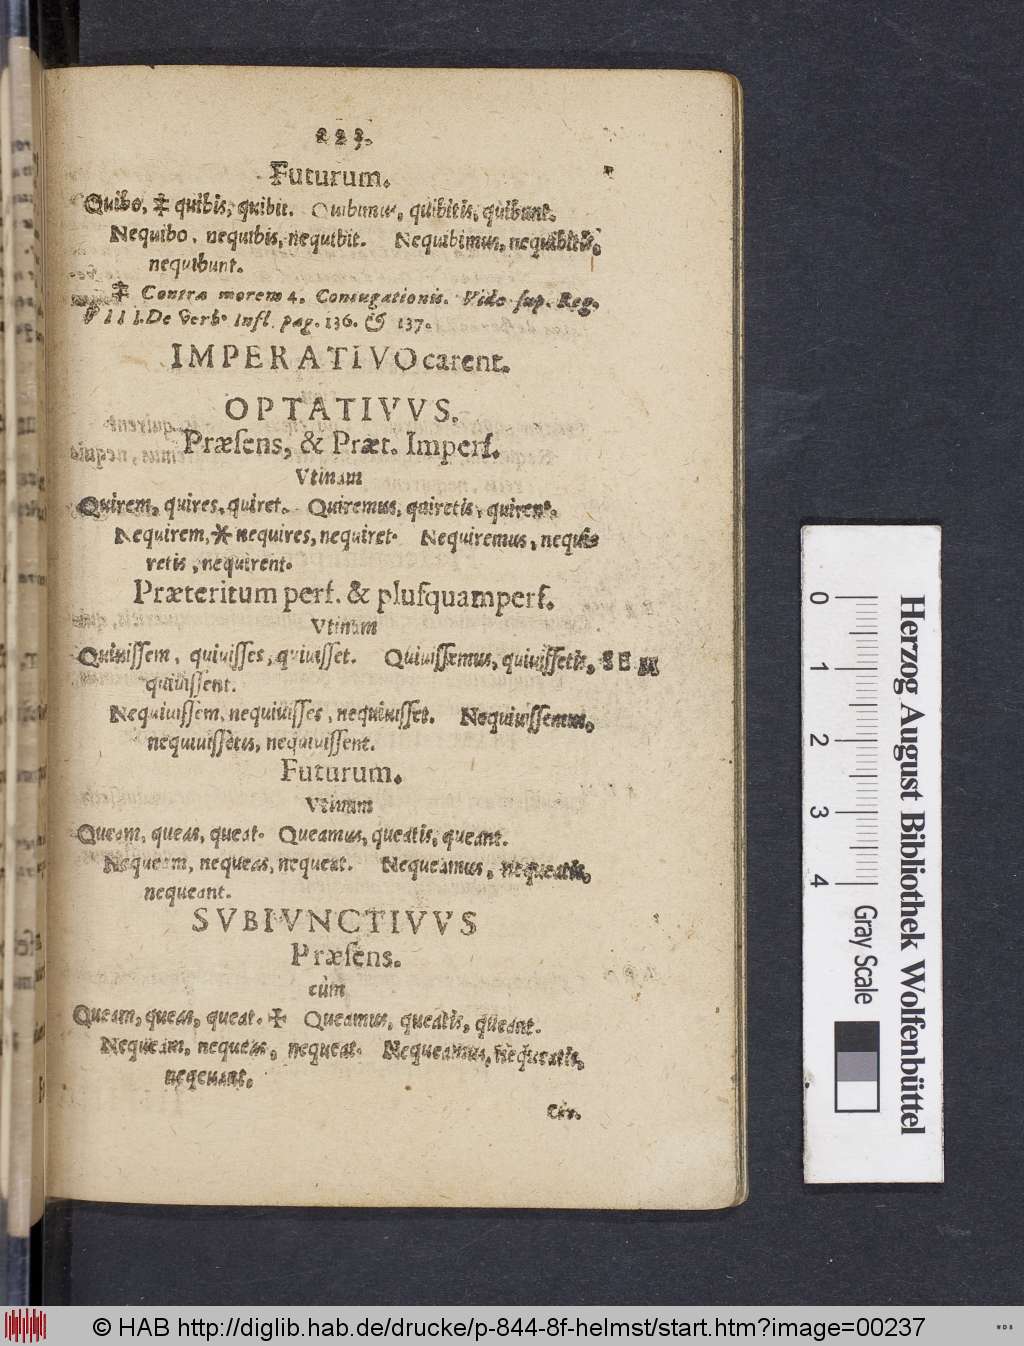 223.
Futurum.
Quibo, ‡ quibis, quibit. Quibimus, quibitis, quibunt.
Nequibo, nequibis, nequibit. Nequibimus, nequibitis,
nequibunt.
‡ Contra morem 4. Coniugationis. Vide sup. Reg.
VIII. De Verb. Infl. pag. 136. & 137.
IMPERATIVO carent.
OPTATIVVS.
Præſens, & Præt. Imperf.
Vtinam
Quirem, quires, quiret. Quiremus, quiretis, quirent.
Nequirem, * nequires, nequiret. Nequiremus, nequi-
retis, nequirent.
Præteritum perf. & pluſquamperf.
Vtinam
Quiuiſſem, quiuiſſes, quiuiſſet. Quiuiſſemus, quiuiſſetis,
quiuiſſent.
Nequiuiſſem, nequiuiſſes, nequiuiſſet. Nequiuiſſemus,
nequiuiſſetis, nequiuiſſent.
Futurum.
Vtinam
Queam, queas, queat. Queamus, queatis, queant.
Nequeam, nequeas, nequeat. Nequeamus, nequeatis,
nequeant.
SVBIVNCTIVVS
Præſens.
cùm
Queam, queas, queat. ‡ Queamus, queatis, queant.
Nequeam, nequeas, nequeat. Nequeamus, nequeatis,
neqeuant.
Herzog August Bibliothek Wolfenbüttel
0 1 2 3 4
Gray Scale
© HAB http://diglib.hab.de/drucke/p-844-8f-helmst/start.htm?image=00237